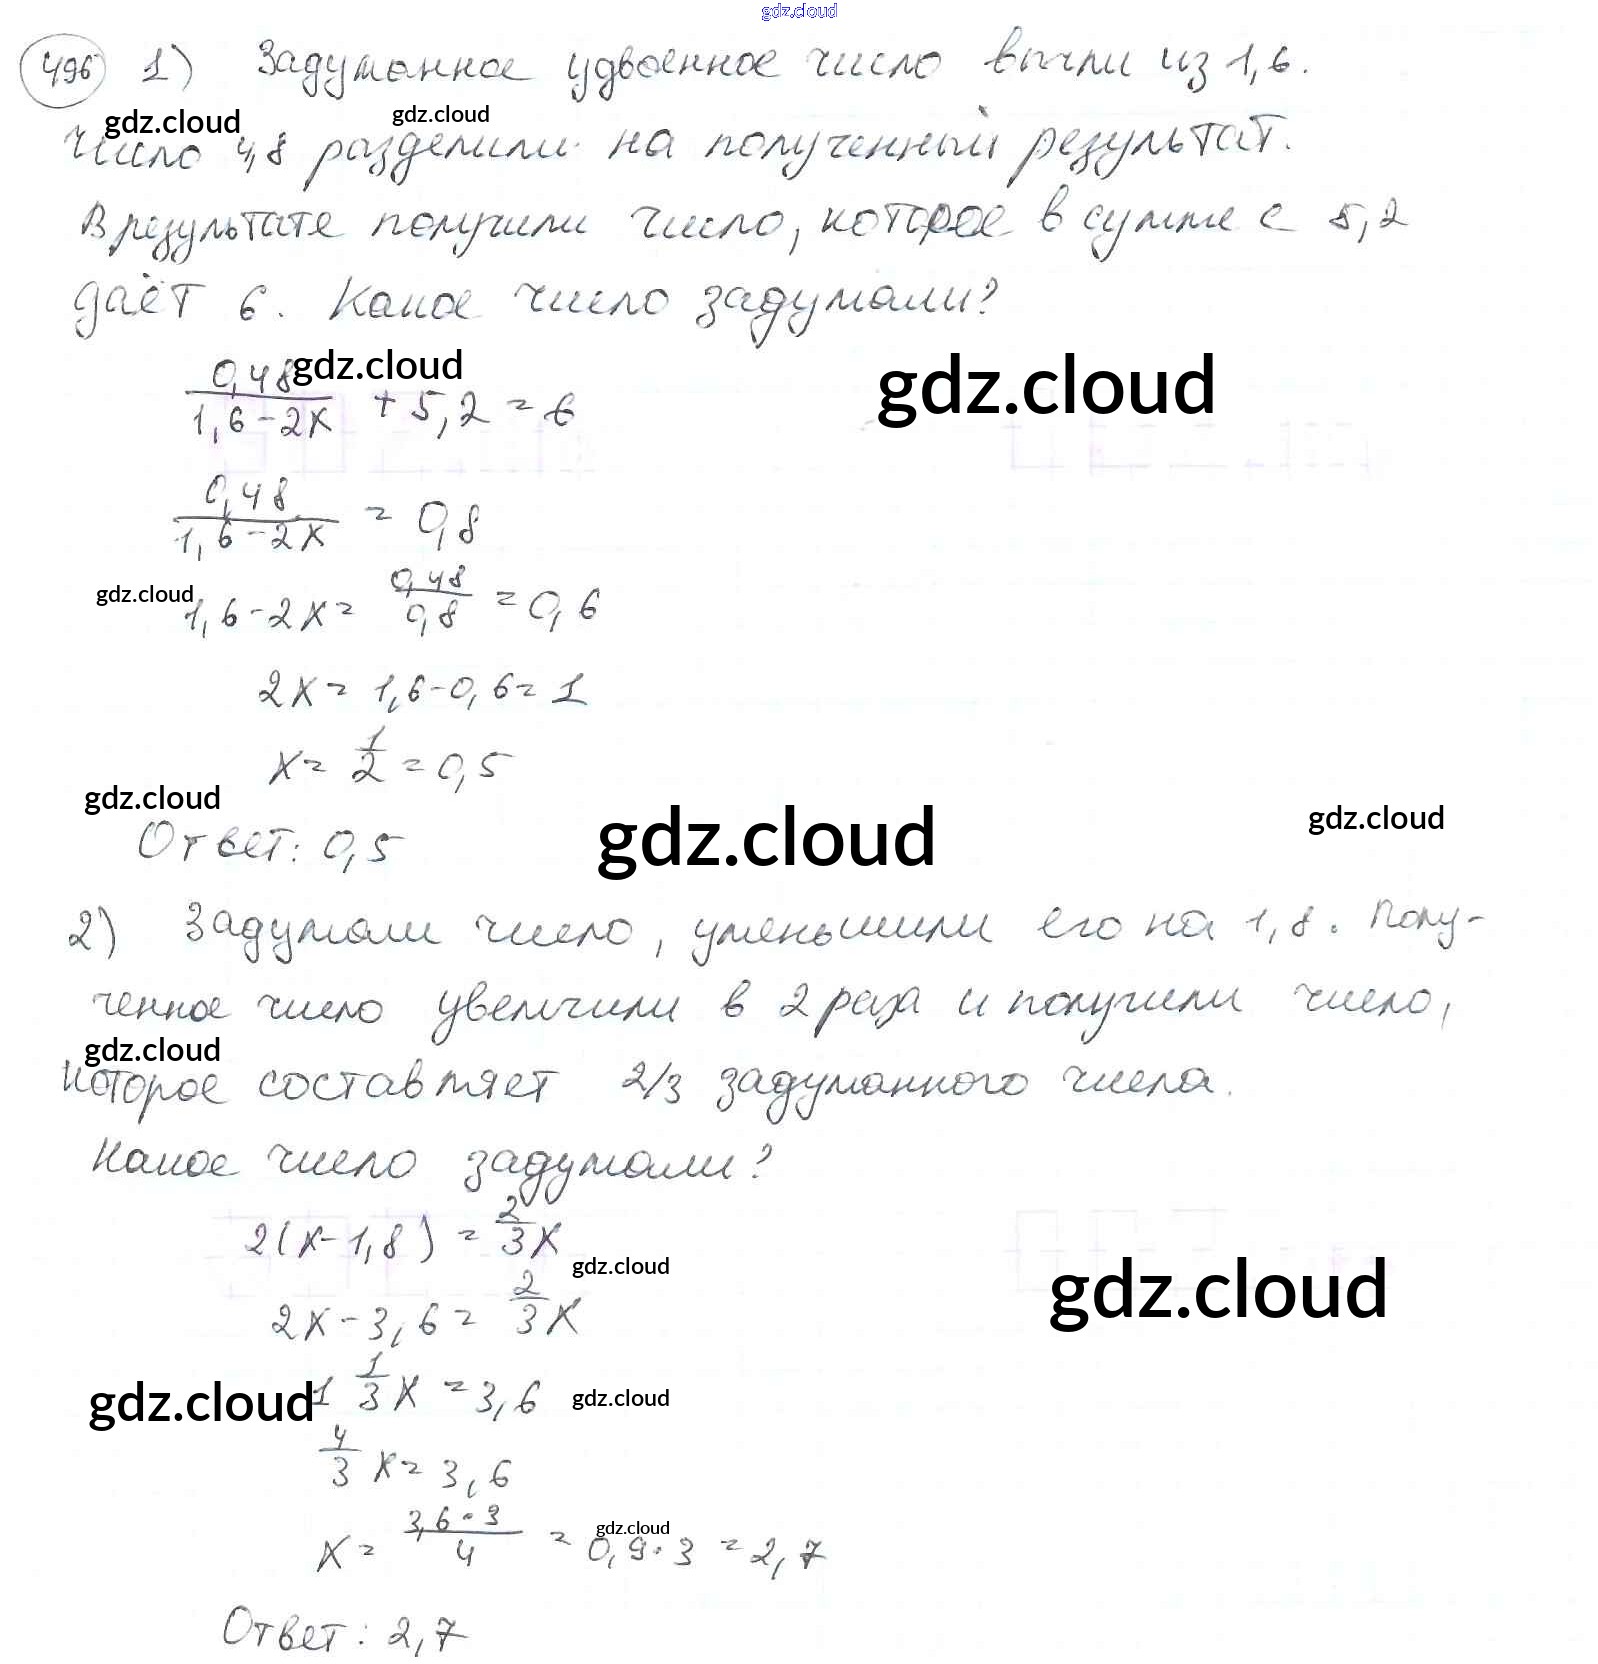 gdz.cloud
496 1) Задуманное удвоенное число вычли из 1,6.
gdz.cloud gdz.cloud
Число 4,8 разделили на полученный результат.
В результате получили число, которое в сумме с 5,2
даёт 6. Какое число задумали?
0,48/(1,6-2x) + 5,2 = 6
gdz.cloud gdz.cloud
0,48/(1,6-2x) = 0,8
gdz.cloud
1,6-2x = 0,48/0,8 = 0,6
2x = 1,6-0,6 = 1
x = 1/2 = 0,5
gdz.cloud gdz.cloud gdz.cloud
Ответ: 0,5
2) Задумали число, уменьшили его на 1,8. Полу-
ченное число увеличили в 2 раза и получили число,
gdz.cloud
которое составляет 2/3 задуманного числа.
Какое число задумали?
2(x-1,8) = 2/3 x
gdz.cloud gdz.cloud
2x-3,6 = 2/3 x
gdz.cloud gdz.cloud
1 1/3 x = 3,6
4/3 x = 3,6
gdz.cloud
x = 3,6·3/4 = 0,9·3 = 2,7
Ответ: 2,7